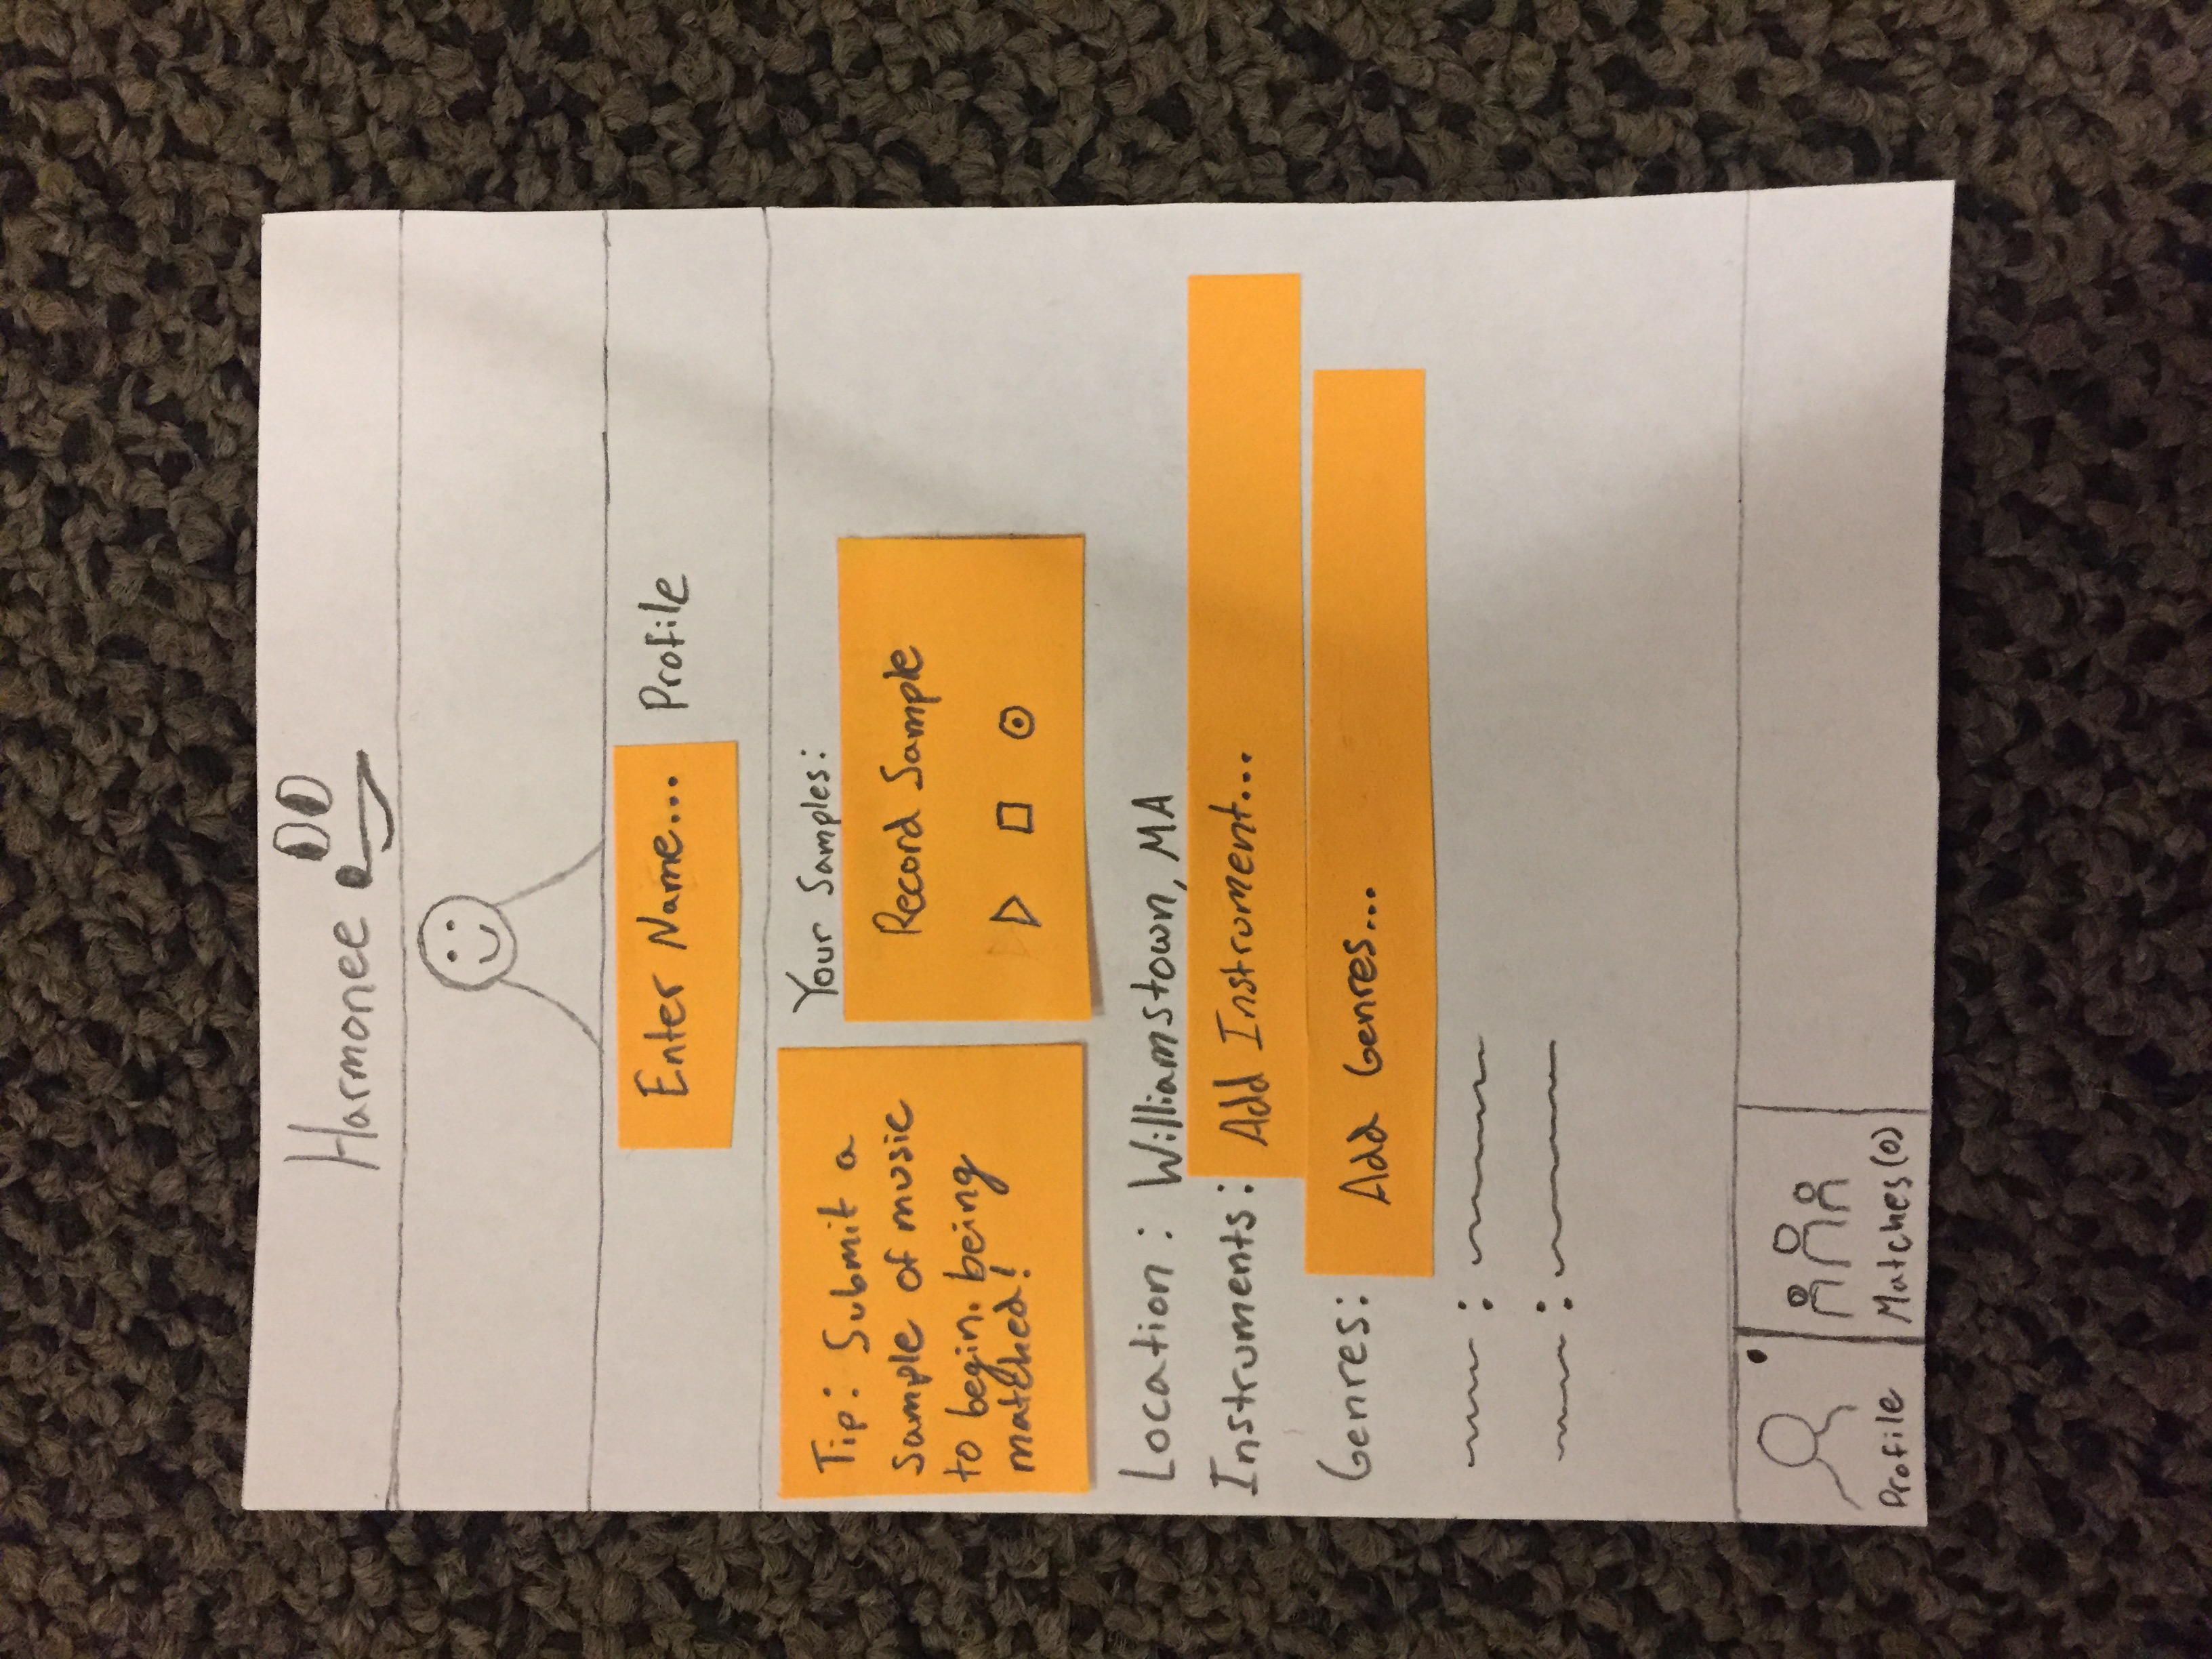 Harmonee
Enter Name... Profile
Tip: Submit a
sample of music
to begin. being
matched!
Your Samples:
Record Sample
Location: Williamstown, MA
Instruments: Add Instrument...
Genres: Add Genres...
Profile
Matches (0)